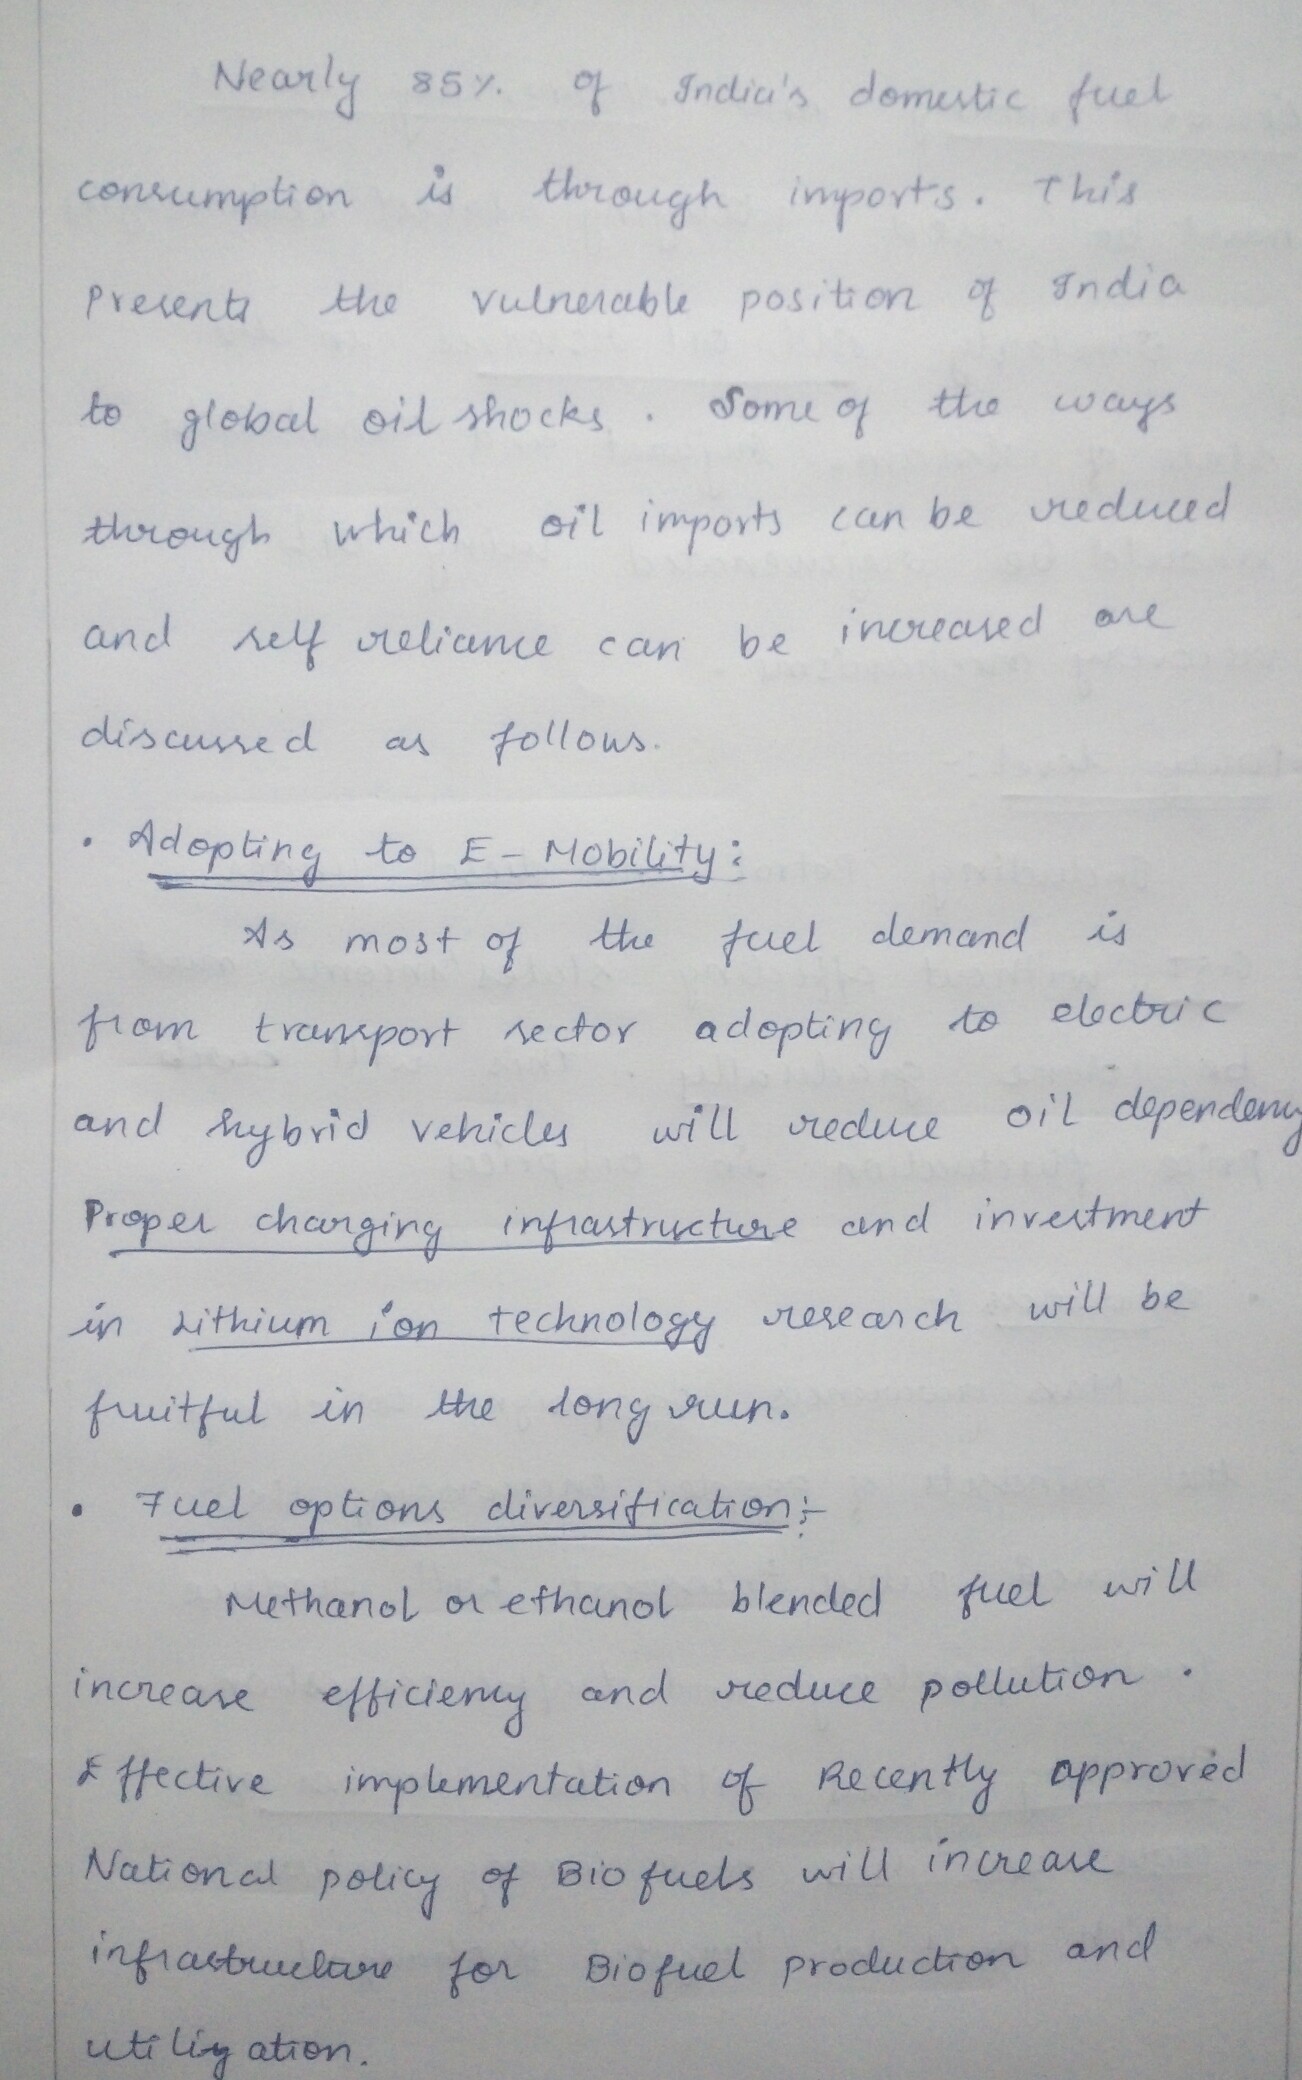 Nearly 85% of India's domestic fuel
consumption is through imports. This
Presents the vulnerable position of India
to global oil shocks. Some of the ways
through which oil imports can be reduced
and self reliance can be increased are
discussed as follows.
• Adopting to E-Mobility:
As most of the fuel demand is
from transport sector adopting to electric
and hybrid vehicles will reduce oil dependency
Proper charging infrastructure and investment
in Lithium ion technology research will be
fruitful in the long run.
• Fuel options diversification:-
Methanol or ethanol blended fuel will
increase efficiency and reduce pollution.
Effective implementation of Recently approved
National policy of Biofuels will increase
infrastructure for Biofuel production and
utilization.